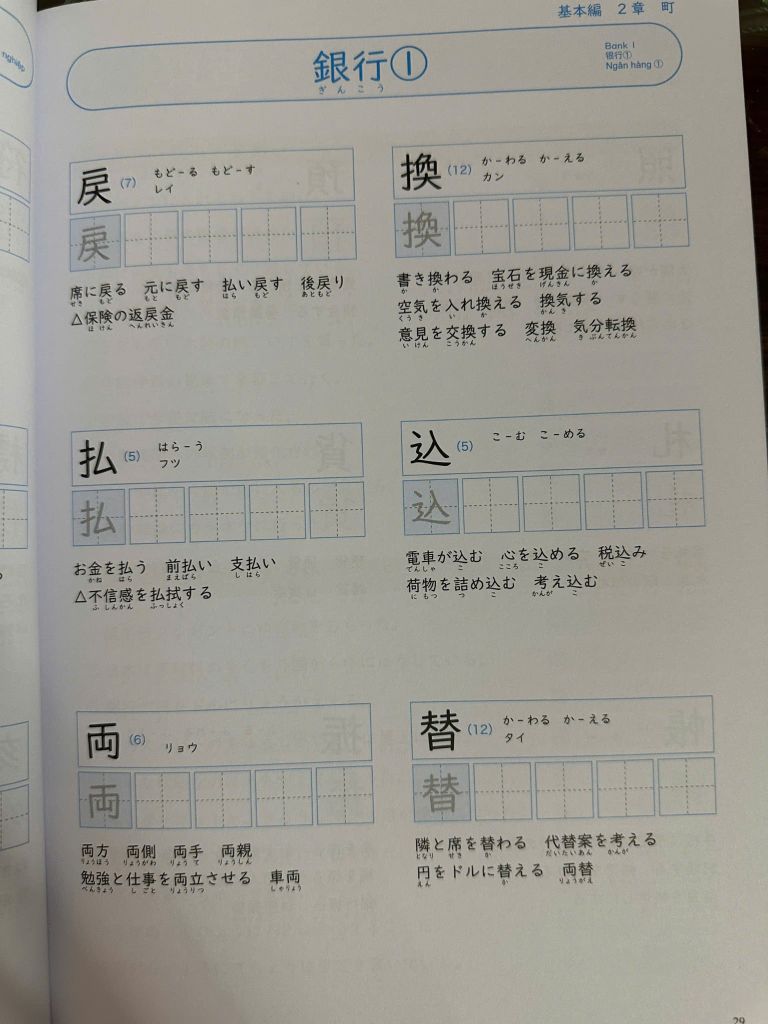 nghiệp
基本編 2章 町
銀行①
ぎんこう
Bank 1
银行①
Ngân hàng ①
戻 (7) もどーる もどーす
レイ
戻
席に戻る 元に戻す 払い戻す 後戻り
せき もど もと もど はら もど あともど
△保険の返戻金
ほけん へんれいきん
換 (12) かーわる かーえる
カン
換
書き換わる 宝石を現金に換える
か か ほうせき げんきん か
空気を入れ換える 換気する
くうき い か かんき
意見を交換する 変換 気分転換
いけん こうかん へんかん きぶんてんかん
払 (5) はらーう
フツ
払
お金を払う 前払い 支払い
かね はら まえばら しはら
△不信感を払拭する
ふしんかん ふっしょく
込 (5) こーむ こーめる
込
電車が込む 心を込める 税込み
でんしゃ こ こころ こ ぜいこ
荷物を詰め込む 考え込む
にもつ つ こ かんが こ
両 (6) リョウ
両
両方 両側 両手 両親
りょうほう りょうがわ りょうて りょうしん
勉強と仕事を両立させる 車両
べんきょう しごと りょうりつ しゃりょう
替 (12) かーわる かーえる
タイ
替
隣と席を替わる 代替案を考える
となり せき か だいたいあん かんが
円をドルに替える 両替
えん か りょうがえ
29